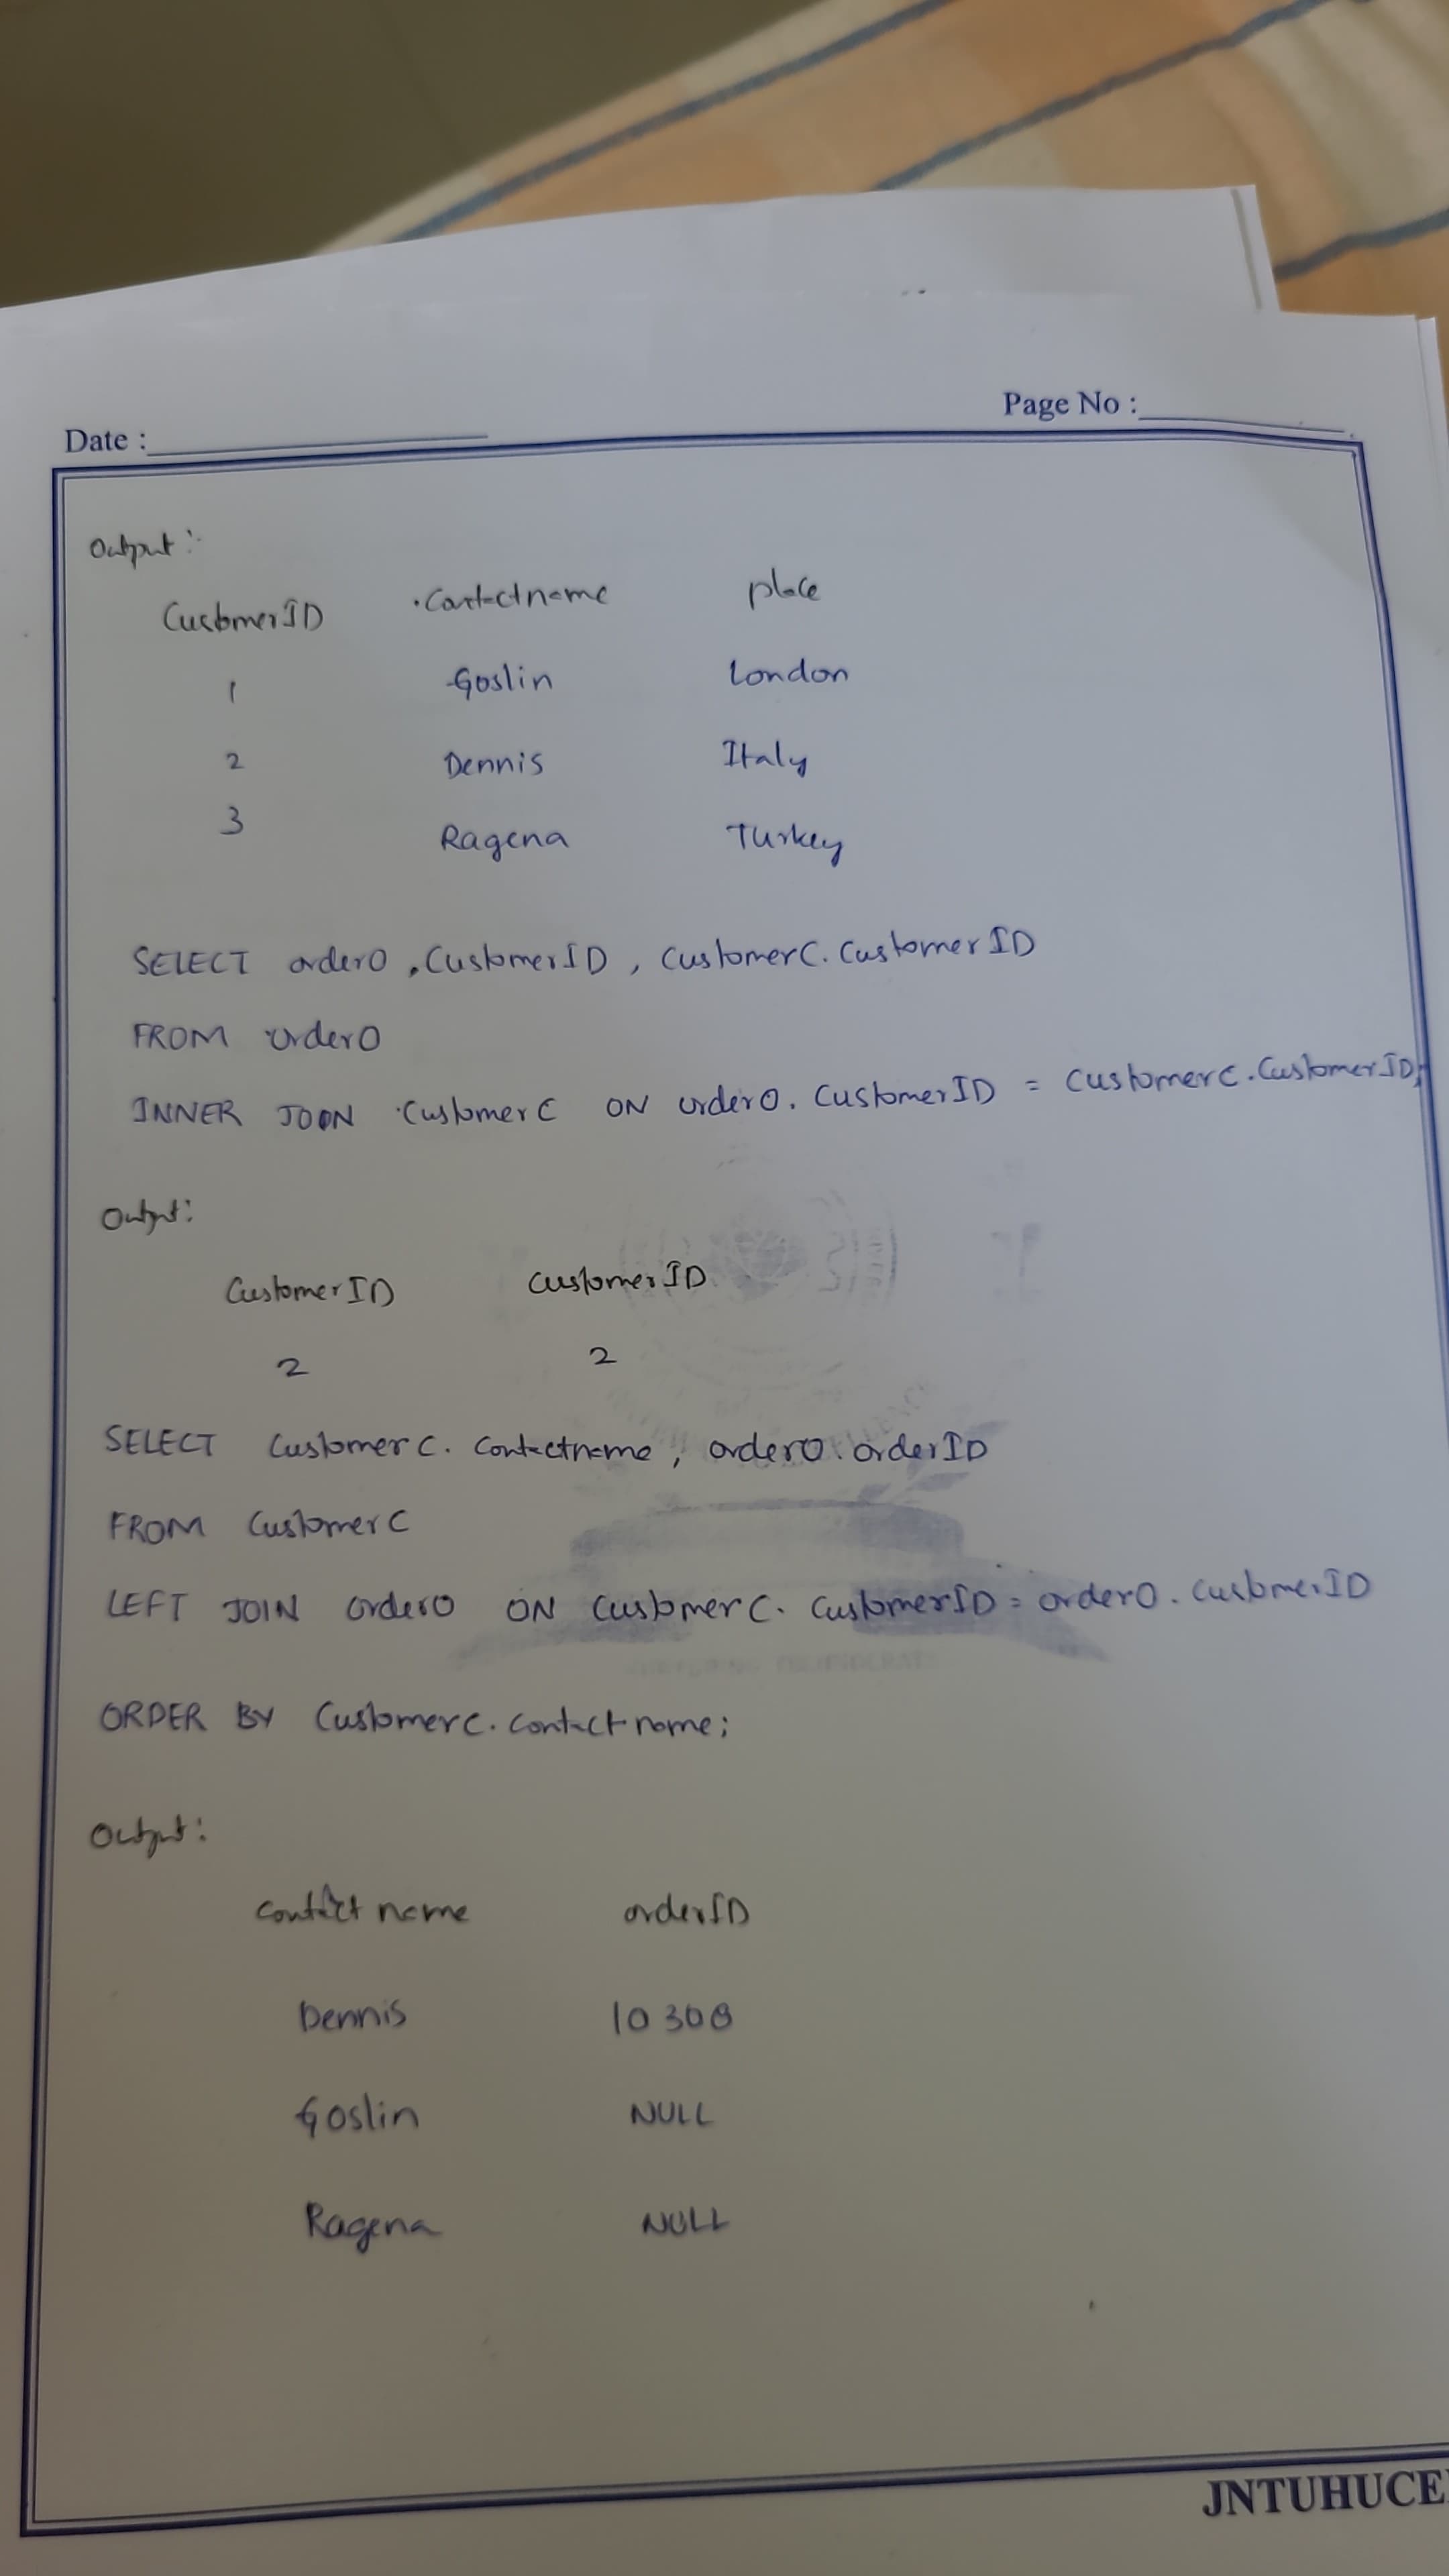 Date :
Page No :
Output :
CustomerID Contactname place
1 Goslin London
2 Dennis Italy
3 Ragena Turkey
SELECT orderO . CustomerID , CustomerC. CustomerID
FROM orderO
INNER JOIN CustomerC ON orderO. CustomerID = CustomerC. CustomerID;
Output:
CustomerID CustomerID
2 2
SELECT CustomerC. Contactname , orderO. orderID
FROM CustomerC
LEFT JOIN orderO ON CustomerC. CustomerID = orderO. CustomerID
ORDER BY CustomerC. contactname;
Output:
contact name orderID
Dennis 10308
Goslin NULL
Ragena NULL
JNTUHUCE